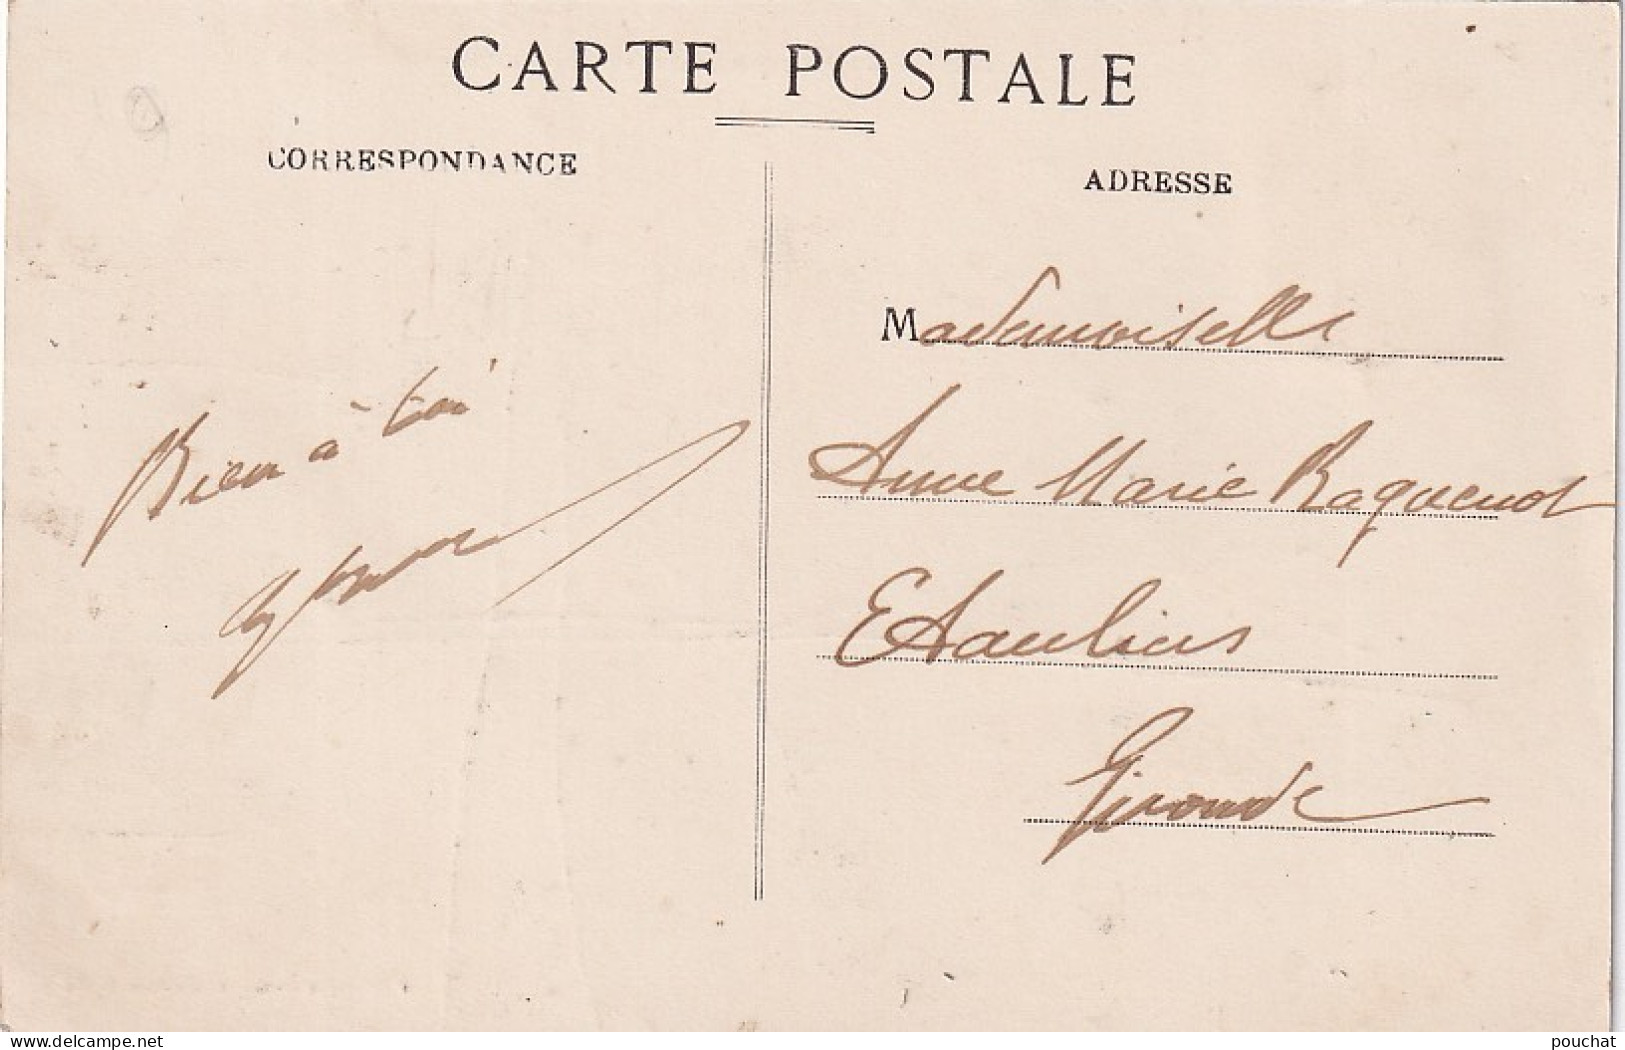 CARTE POSTALE
CORRESPONDANCE
ADRESSE
Mademoiselle
Anne Marie Raquenot
Etauliers
Gironde
Bien à toi
delcampe.net
pouchat